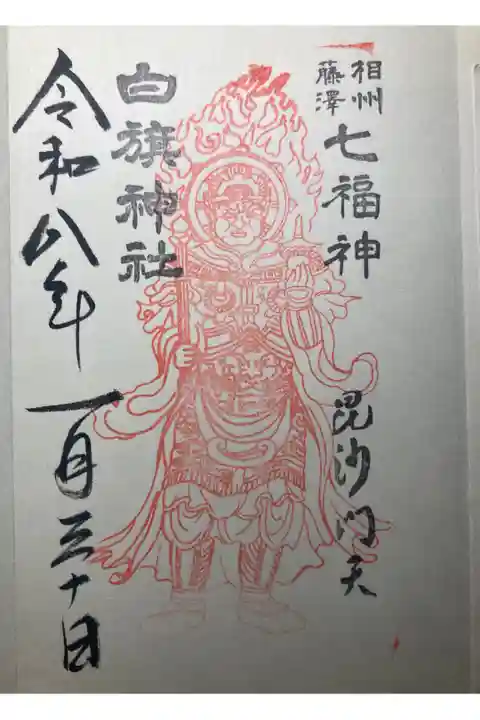 相州
藤澤
七福神
毘沙門天
白旗神社
令和八年 一月三十日